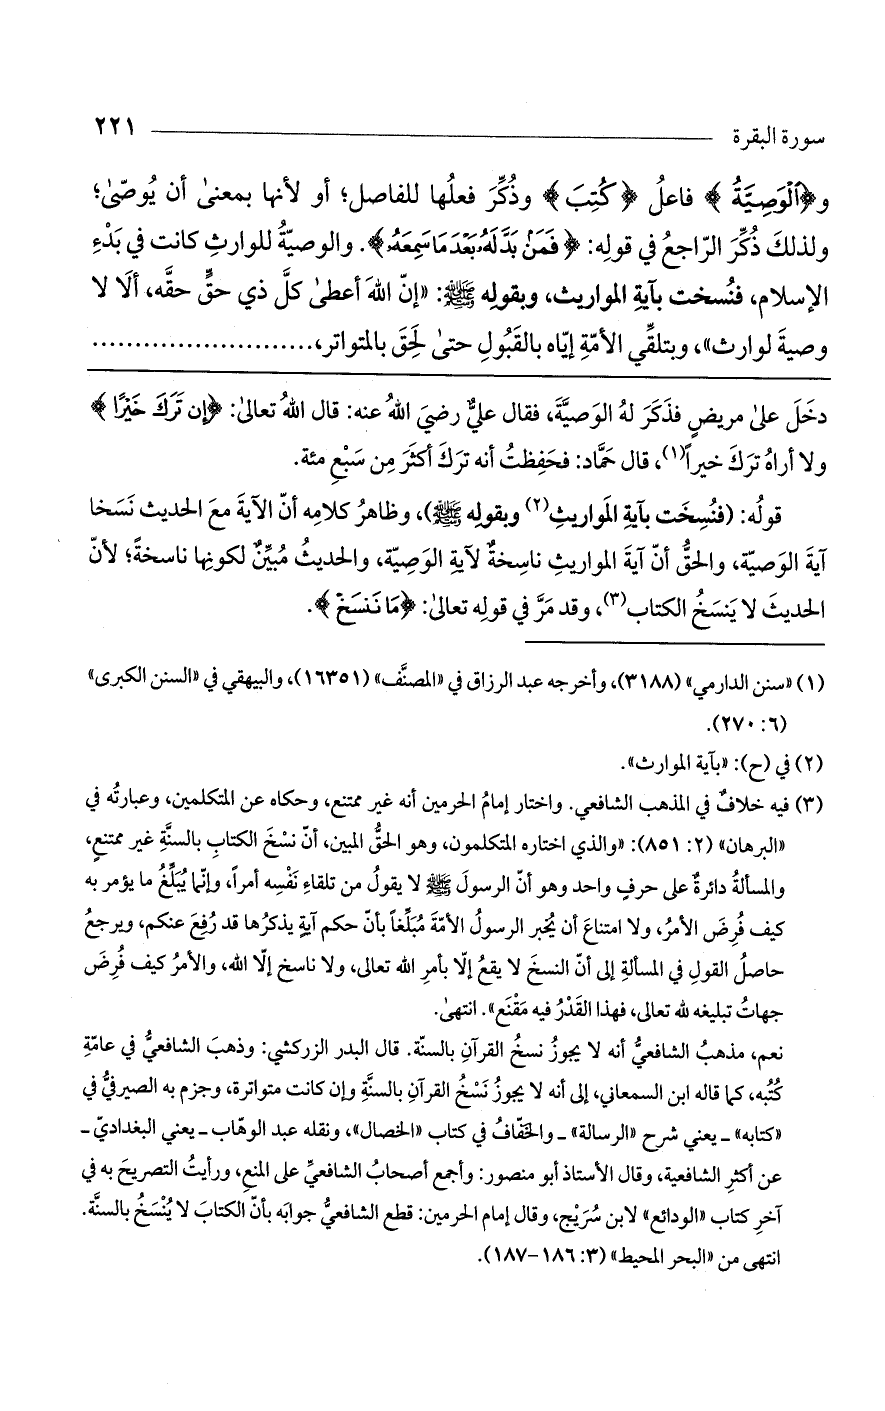 سورة البقرة ٢٢١
و﴿ٱلْوَصِيَّةُ﴾ فاعلُ ﴿كُتِبَ﴾ وذُكِّرَ فعلُها للفاصل؛ أو لأنها بمعنىٰ أن يُوصّىٰ؛
ولذلكَ ذُكِّرَ الرّاجعُ في قولِه: ﴿فَمَنۢ بَدَّلَهُۥ بَعْدَ مَا سَمِعَهُۥ﴾. والوصيّةُ للوارثِ كانت في بَدْءِ
الإسلام، فنُسخت بآيةِ المواريث، وبقولِه ﷺ: «إنّ اللهَ أعطىٰ كلَّ ذي حقٍّ حقَّه، ألَا لا
وصيةَ لوارث»، وبتلقِّي الأمّةِ إيّاه بالقَبُولِ حتىٰ لَحِقَ بالمتواتر، .........................
دخَلَ علىٰ مريضٍ فذَكَرَ لهُ الوَصيَّةَ، فقال عليٌّ رضيَ اللهُ عنه: قال اللهُ تعالىٰ: ﴿إِن تَرَكَ خَيْرًا﴾
ولا أراهُ تركَ خيراً(١)، قال حمَّاد: فحَفِظتُ أنه تركَ أكثرَ مِن سَبْعِ مئة.
قولُه: (فنُسِخَت بآيةِ المَواريثِ(٢) وبقولِه ﷺ)، وظاهرُ كلامِه أنّ الآيةَ معَ الحديث نَسَخا
آيةَ الوَصيّة، والحقُّ أنّ آيةَ المواريثِ ناسِخةٌ لآيةِ الوَصِيّة، والحديثُ مُبيِّنٌ لكونِها ناسخةً؛ لأنّ
الحديثَ لا يَنسَخُ الكتاب(٣)، وقد مَرَّ في قولِه تعالىٰ: ﴿مَا نَنسَخْ﴾.
(١) «سنن الدارمي» (٣١٨٨)، وأخرجه عبد الرزاق في «المصنَّف» (١٦٣٥١)، والبيهقي في «السنن الكبرى»
(٦: ٢٧٠).
(٢) في (ح): «بآية الموارث».
(٣) فيه خلافٌ في المذهب الشافعي. واختار إمامُ الحرمين أنه غير ممتنع، وحكاه عن المتكلمين، وعبارتُه في
«البرهان» (٢: ٨٥١): «والذي اختاره المتكلمون، وهو الحقُّ المبين، أنّ نسْخَ الكتابِ بالسنَّةِ غير ممتنعٍ،
والمسألةُ دائرةٌ على حرفٍ واحد وهو أنّ الرسولَ ﷺ لا يقولُ من تلقاءِ نَفْسِه أمراً، وإنّما يُبَلِّغُ ما يؤمر به
كيف فُرِضَ الأمرُ، ولا امتناعَ أن يُخبر الرسولُ الأمّةَ مُبَلِّغاً بأنّ حكم آيةٍ يذكرُها قد رُفِعَ عنكم، ويرجعُ
حاصلُ القولِ في المسألةِ إلى أنّ النسخَ لا يقعُ إلّا بأمرِ الله تعالى، ولا ناسخ إلّا الله، والأمرُ كيف فُرِضَ
جهاتُ تبليغه لله تعالى، فهذا القَدْرُ فيه مَقْنَع». انتهىٰ.
نعم، مذهبُ الشافعيُّ أنه لا يجوزُ نسخُ القرآنِ بالسنة. قال البدر الزركشي: وذهبَ الشافعيُّ في عامّةِ
كُتُبه، كما قاله ابن السمعاني، إلى أنه لا يجوزُ نَسْخُ القرآنِ بالسنَّةِ وإن كانت متواترة، وجزم به الصيرفيُّ في
«كتابه» ـ يعني شرح «الرسالة» ـ والخفّافُ في كتاب «الخصال»، ونقله عبد الوهّاب ـ يعني البغداديّ ـ
عن أكثرِ الشافعية، وقال الأستاذ أبو منصور: وأجمع أصحابُ الشافعيِّ على المنع، ورأيتُ التصريحَ به في
آخرِ كتاب «الودائع» لابن سُرَيْج، وقال إمام الحرمين: قطع الشافعيُّ جوابَه بأنّ الكتابَ لا يُنْسَخُ بالسنَّة.
انتهى من «البحر المحيط» (٣: ١٨٦-١٨٧).